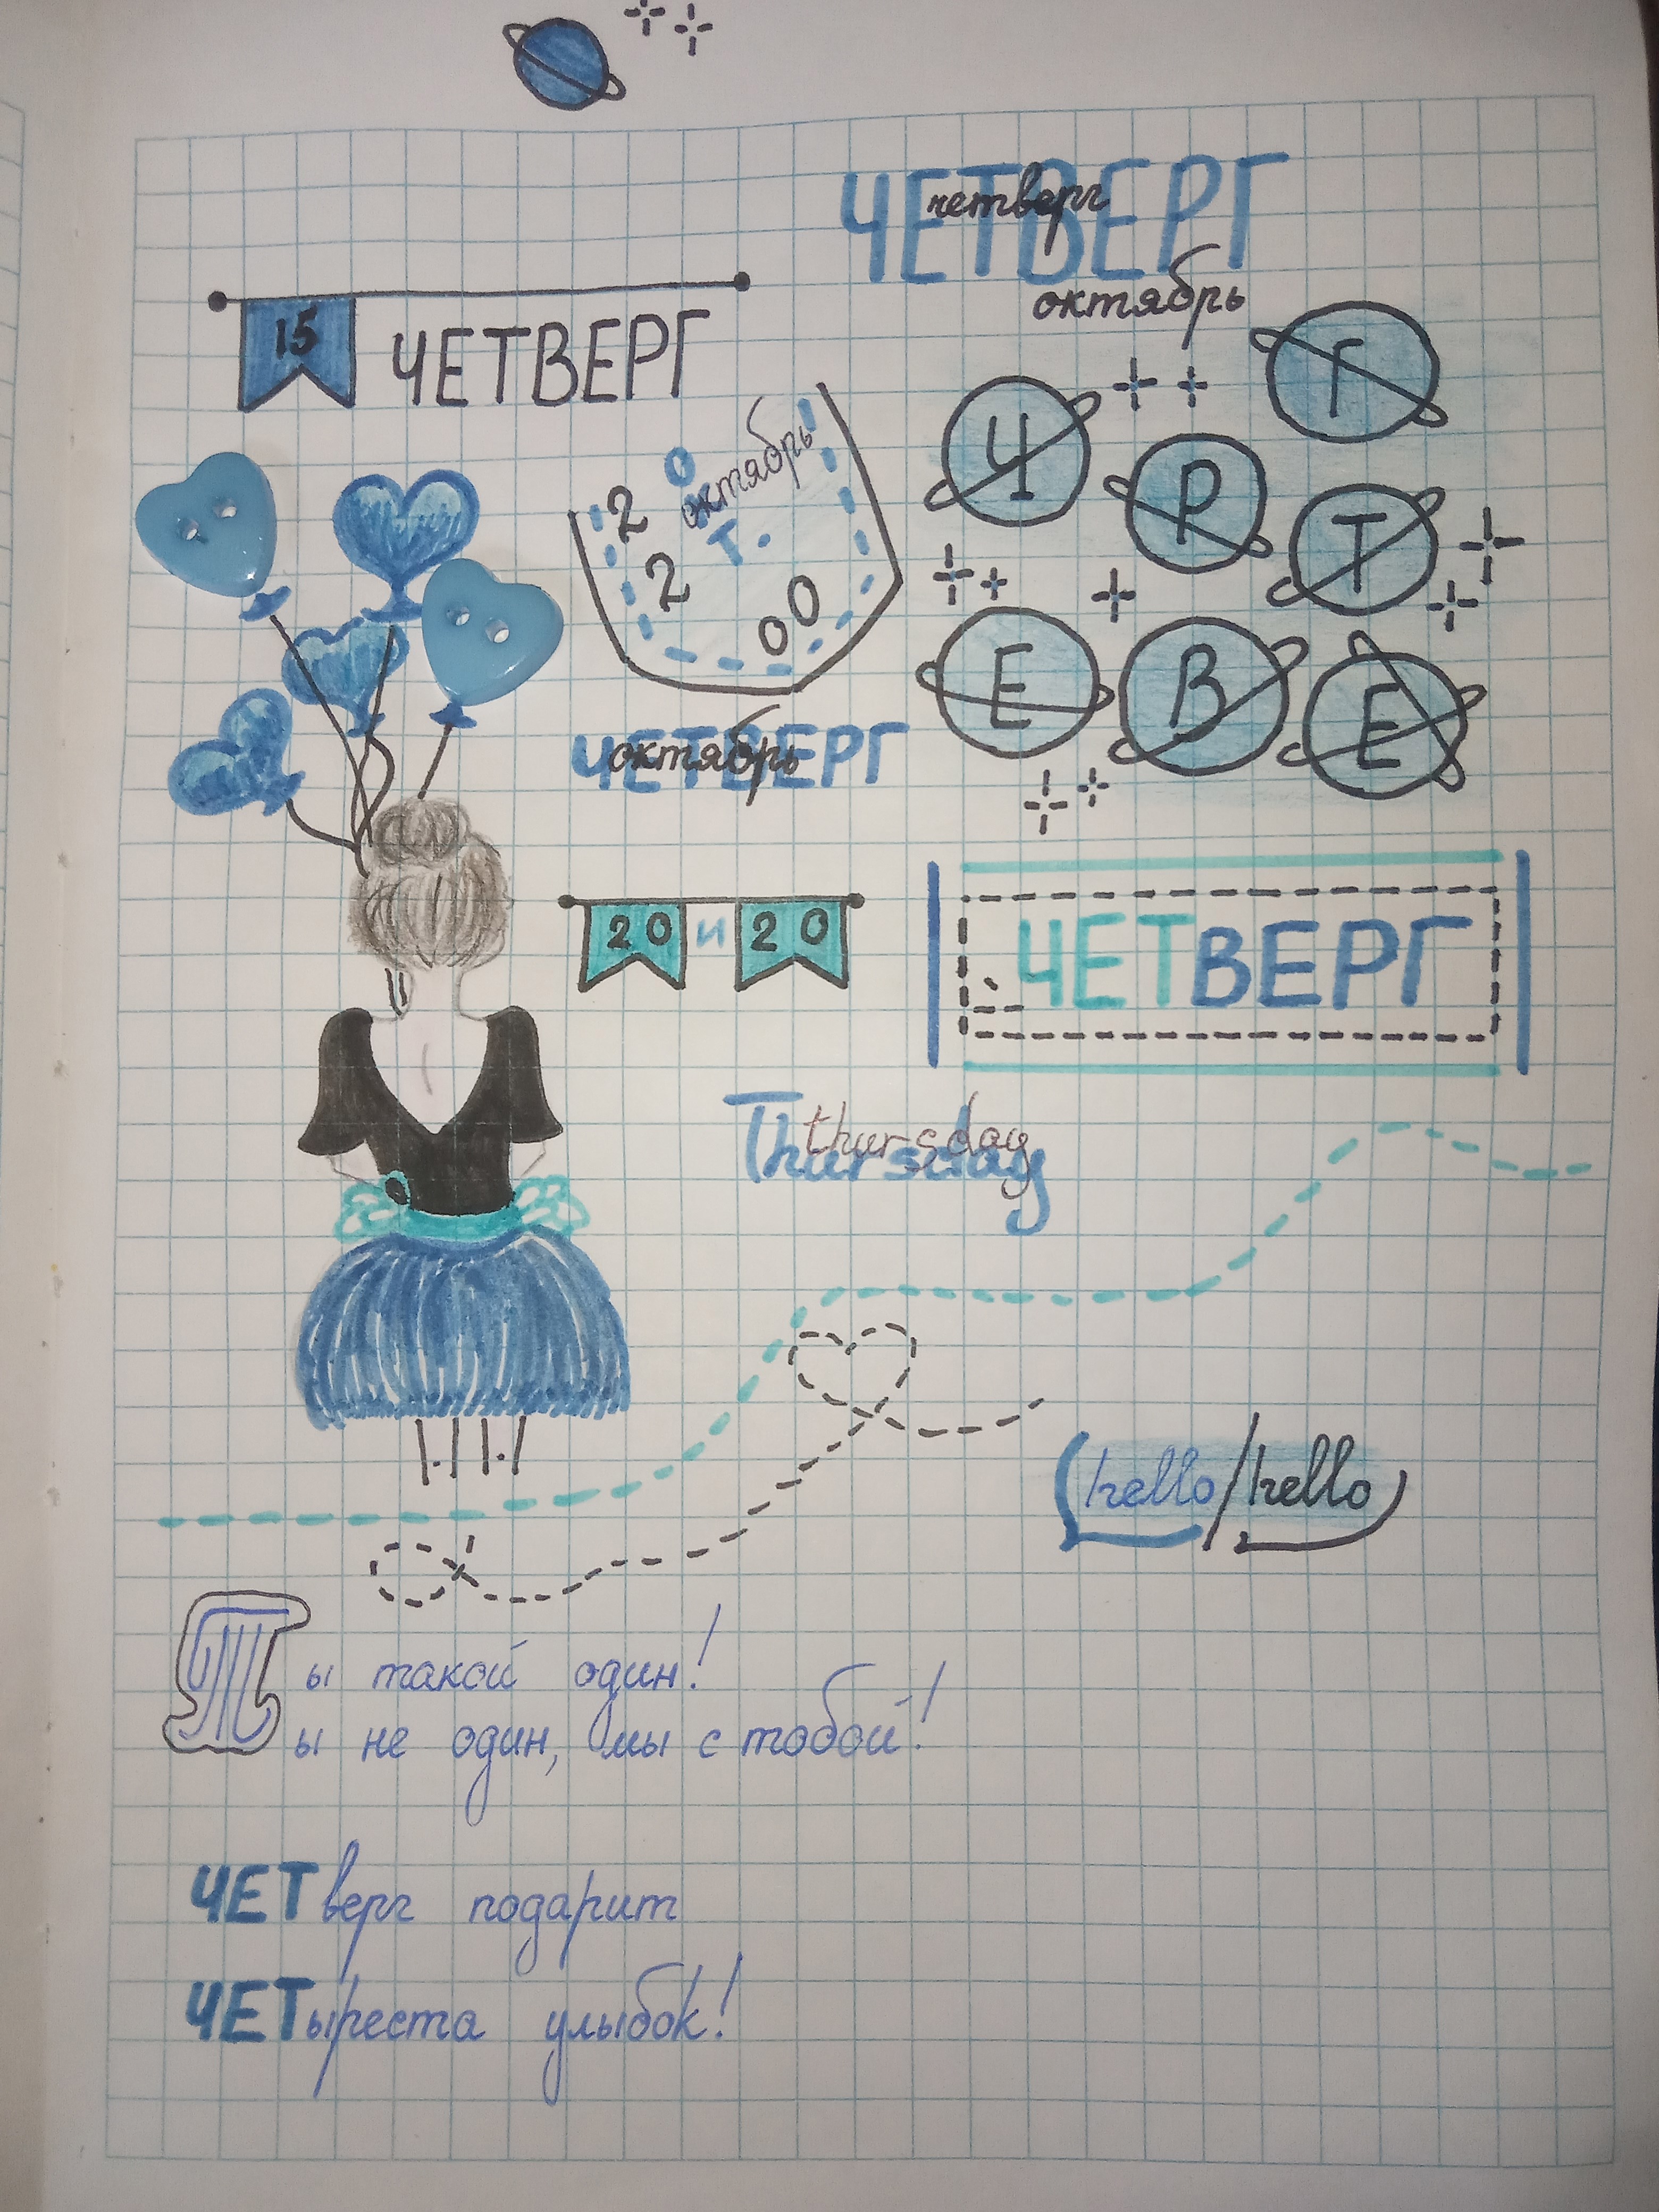 ЧЕТВЕРГ
четверг
октябрь
15 ЧЕТВЕРГ
О
октябрь
Т.
2
2
00
Ч Г
Р Т
Е В Е
ЧЕТВЕРГ
октябрь
20 и 20
ЧЕТВЕРГ
Thursday
thursday
(hello/hello)
Ты такой один!
ы не один, мы с тобой!
ЧЕТверг подарит
ЧЕТыреста улыбок!